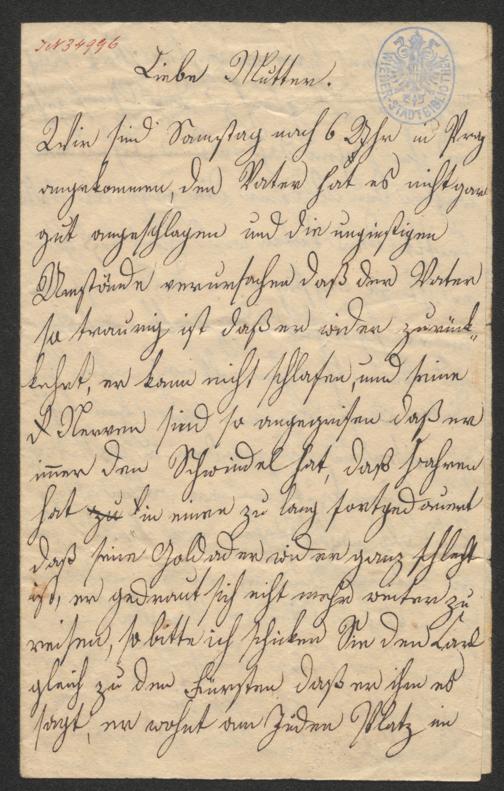 IN 34996
WIENER STADTBIBLIOTHEK
Liebe Mutter.
Wir sind Samstag nach 6 Uhr in Prag
angekommen, den Vater hat es nicht gar
gut angeschlagen und die ungünstigen
Umstände verursachen daß der Vater
so traurig ist daß er wider zurück„
kehrt, er kann nicht schlafen, und seine
Nerven sind so angegrifen daß er
immer den Schwindel hat, daß Fahren
hat zu in einen zu lang fortgedauert
daß seine Goldader wider ganz schlecht
ist, er gedraut sich nicht mehr weiter zu
reisen, so bitte ich schicken Sie den Carl
gleich zu den Fürsten daß er ihm es
sagt, er wohnt am Juden Platz im